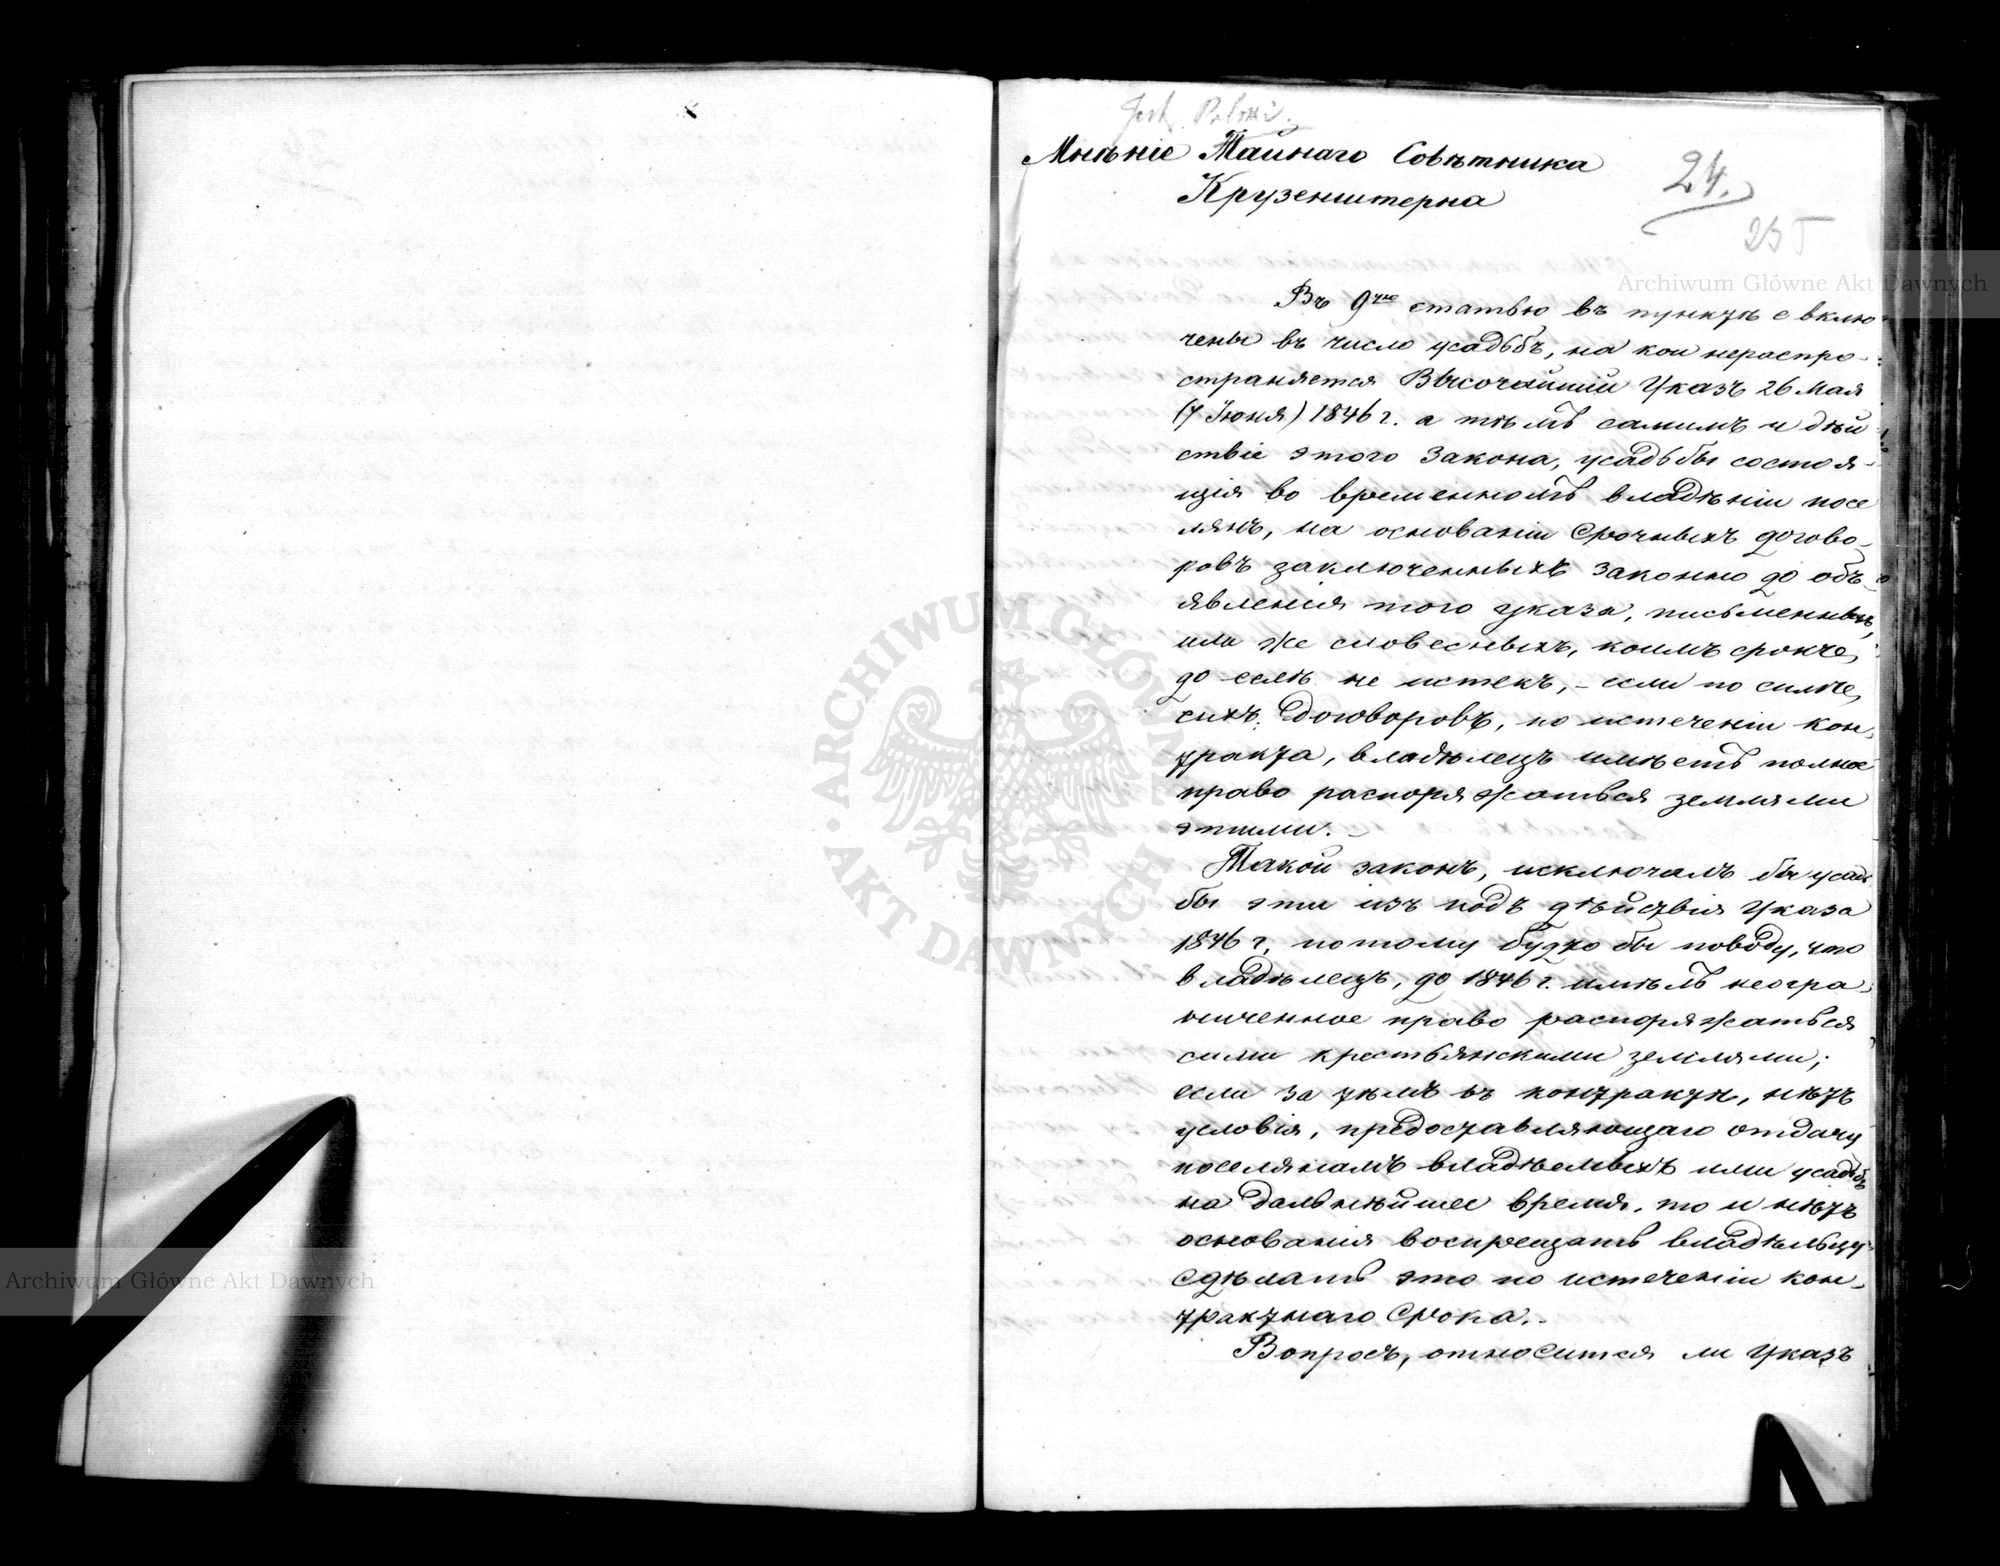 Jest Polski.
Мнѣніе Тайнаго Совѣтника
Крузенштерна
24.
235
Archiwum Główne Akt Dawnych
Въ 9ую статью въ пунктѣ с вклю
чены въ число усадьбъ, на кои нераспро-
страняется Высочайшій Указъ 26 Мая
(7 Іюня) 1846 г. а тѣмъ самимъ и дѣй
ствіе этого Закона, усадьбы состоя-
щія во временномъ владѣніи посе
лянъ, на основаніи срочныхъ догово-
ровъ заключенныхъ законно до объ-
явленія того указа, письменныхъ,
или же словесныхъ, коимъ срокъ
до селѣ не истекъ, - если по силѣ
сихъ договоровъ, по истеченіи кон-
тракта, владѣлецъ имѣетъ полное
право распоряжаться землями
этими. -
Такой законъ, исключалъ бы усадь
бы эти изъ подъ дѣйствія Указа
1846 г. потому будто бы поводу, что
владѣлецъ, до 1846 г. имѣлъ неогра-
ниченное право распоряжаться
сими крестьянскими землями;
если за тѣмъ въ контрактѣ, нѣтъ
условія, предоставляющаго отдачу
поселянамъ владѣемыхъ ими усадьбъ
на дальнѣйшее время, то и нѣтъ
основанія воспрещать владѣльцу
сдѣлать это по истеченіи кон-
трактнаго срока. -
Вопросъ, относится ли Указъ
ARCHIWUM GŁÓWNE AKT DAWNYCH
Archiwum Główne Akt Dawnych